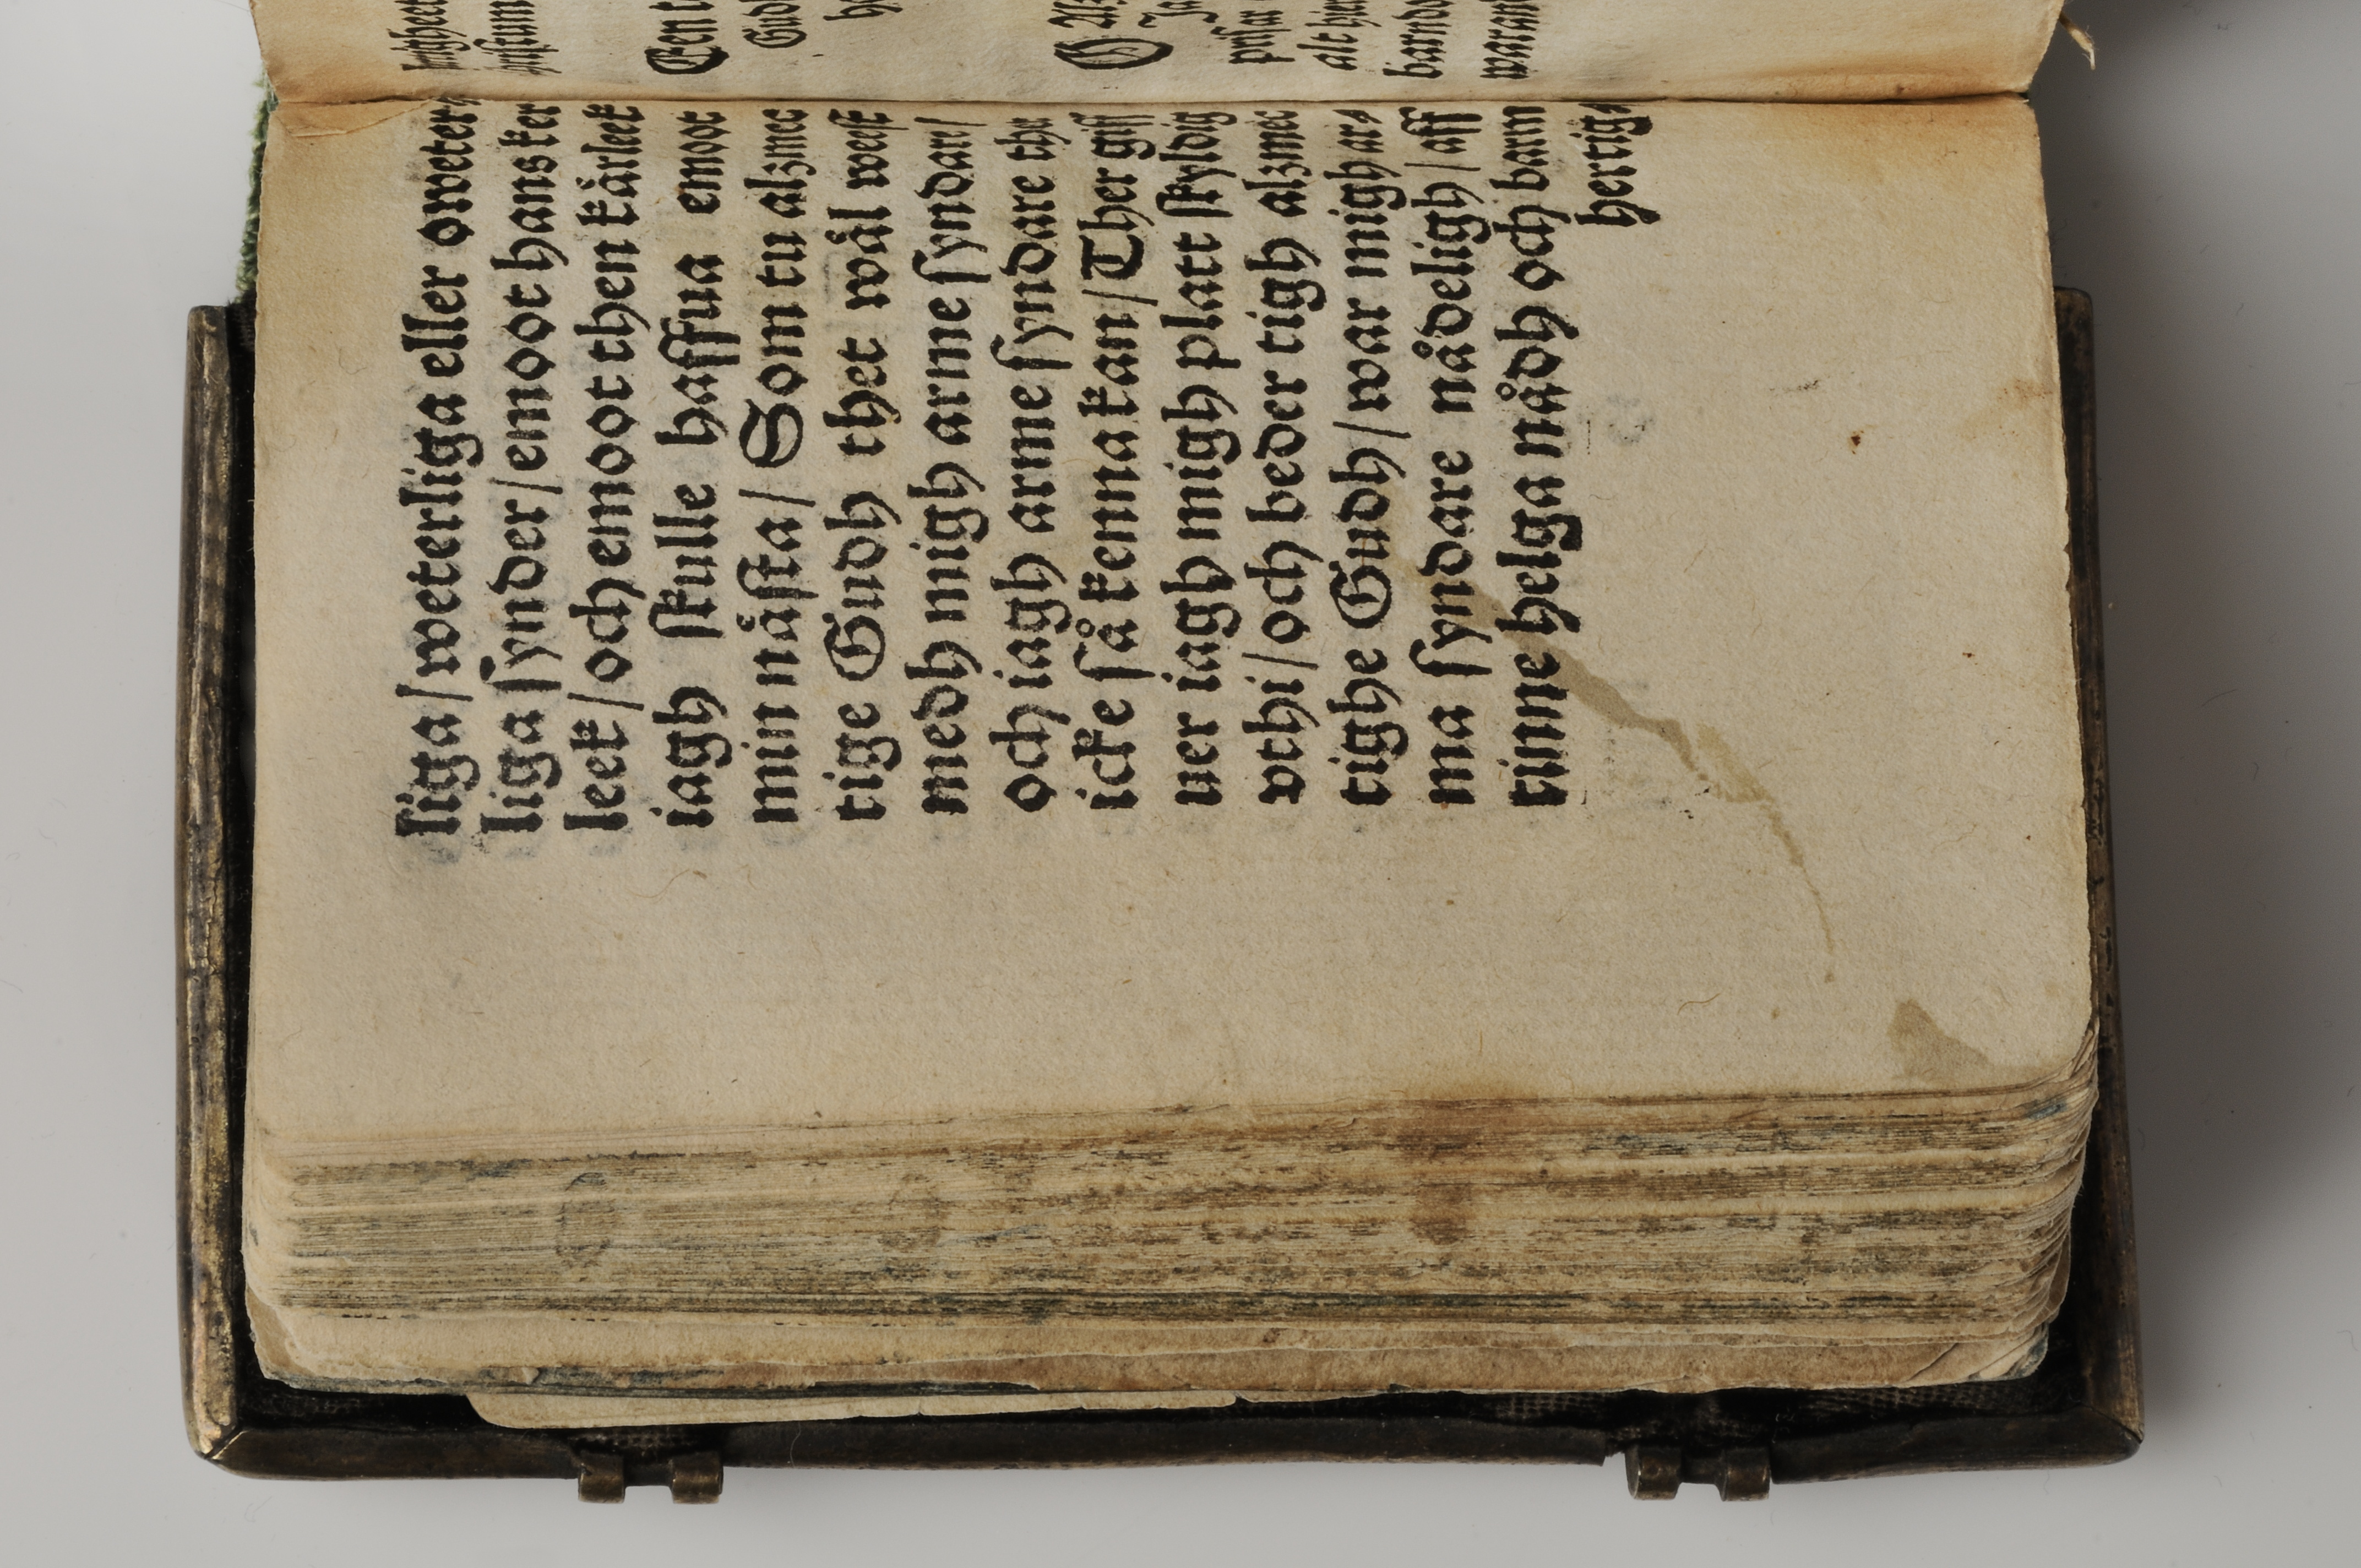 liga/ weterliga eller oweter⸗
liga synder/ emoot hans ker
leek/ och emoot then kärleek
iagh skulle haffua emoot
min nästa/ Som tu alzmec
tige Gudh thet wäl west
medh migh arme syndare/
och iagh arme syndare the
icke så kenna kan/ Ther giff
uer iagh migh platt skyldig
vthi/ och beder tigh alzmec
tighe Gudh/ war migh ar⸗
ma syndare nådeligh/ aff
tinne helga nådh och barm
hertig⸗
Een
Gud
O
alt
barndo